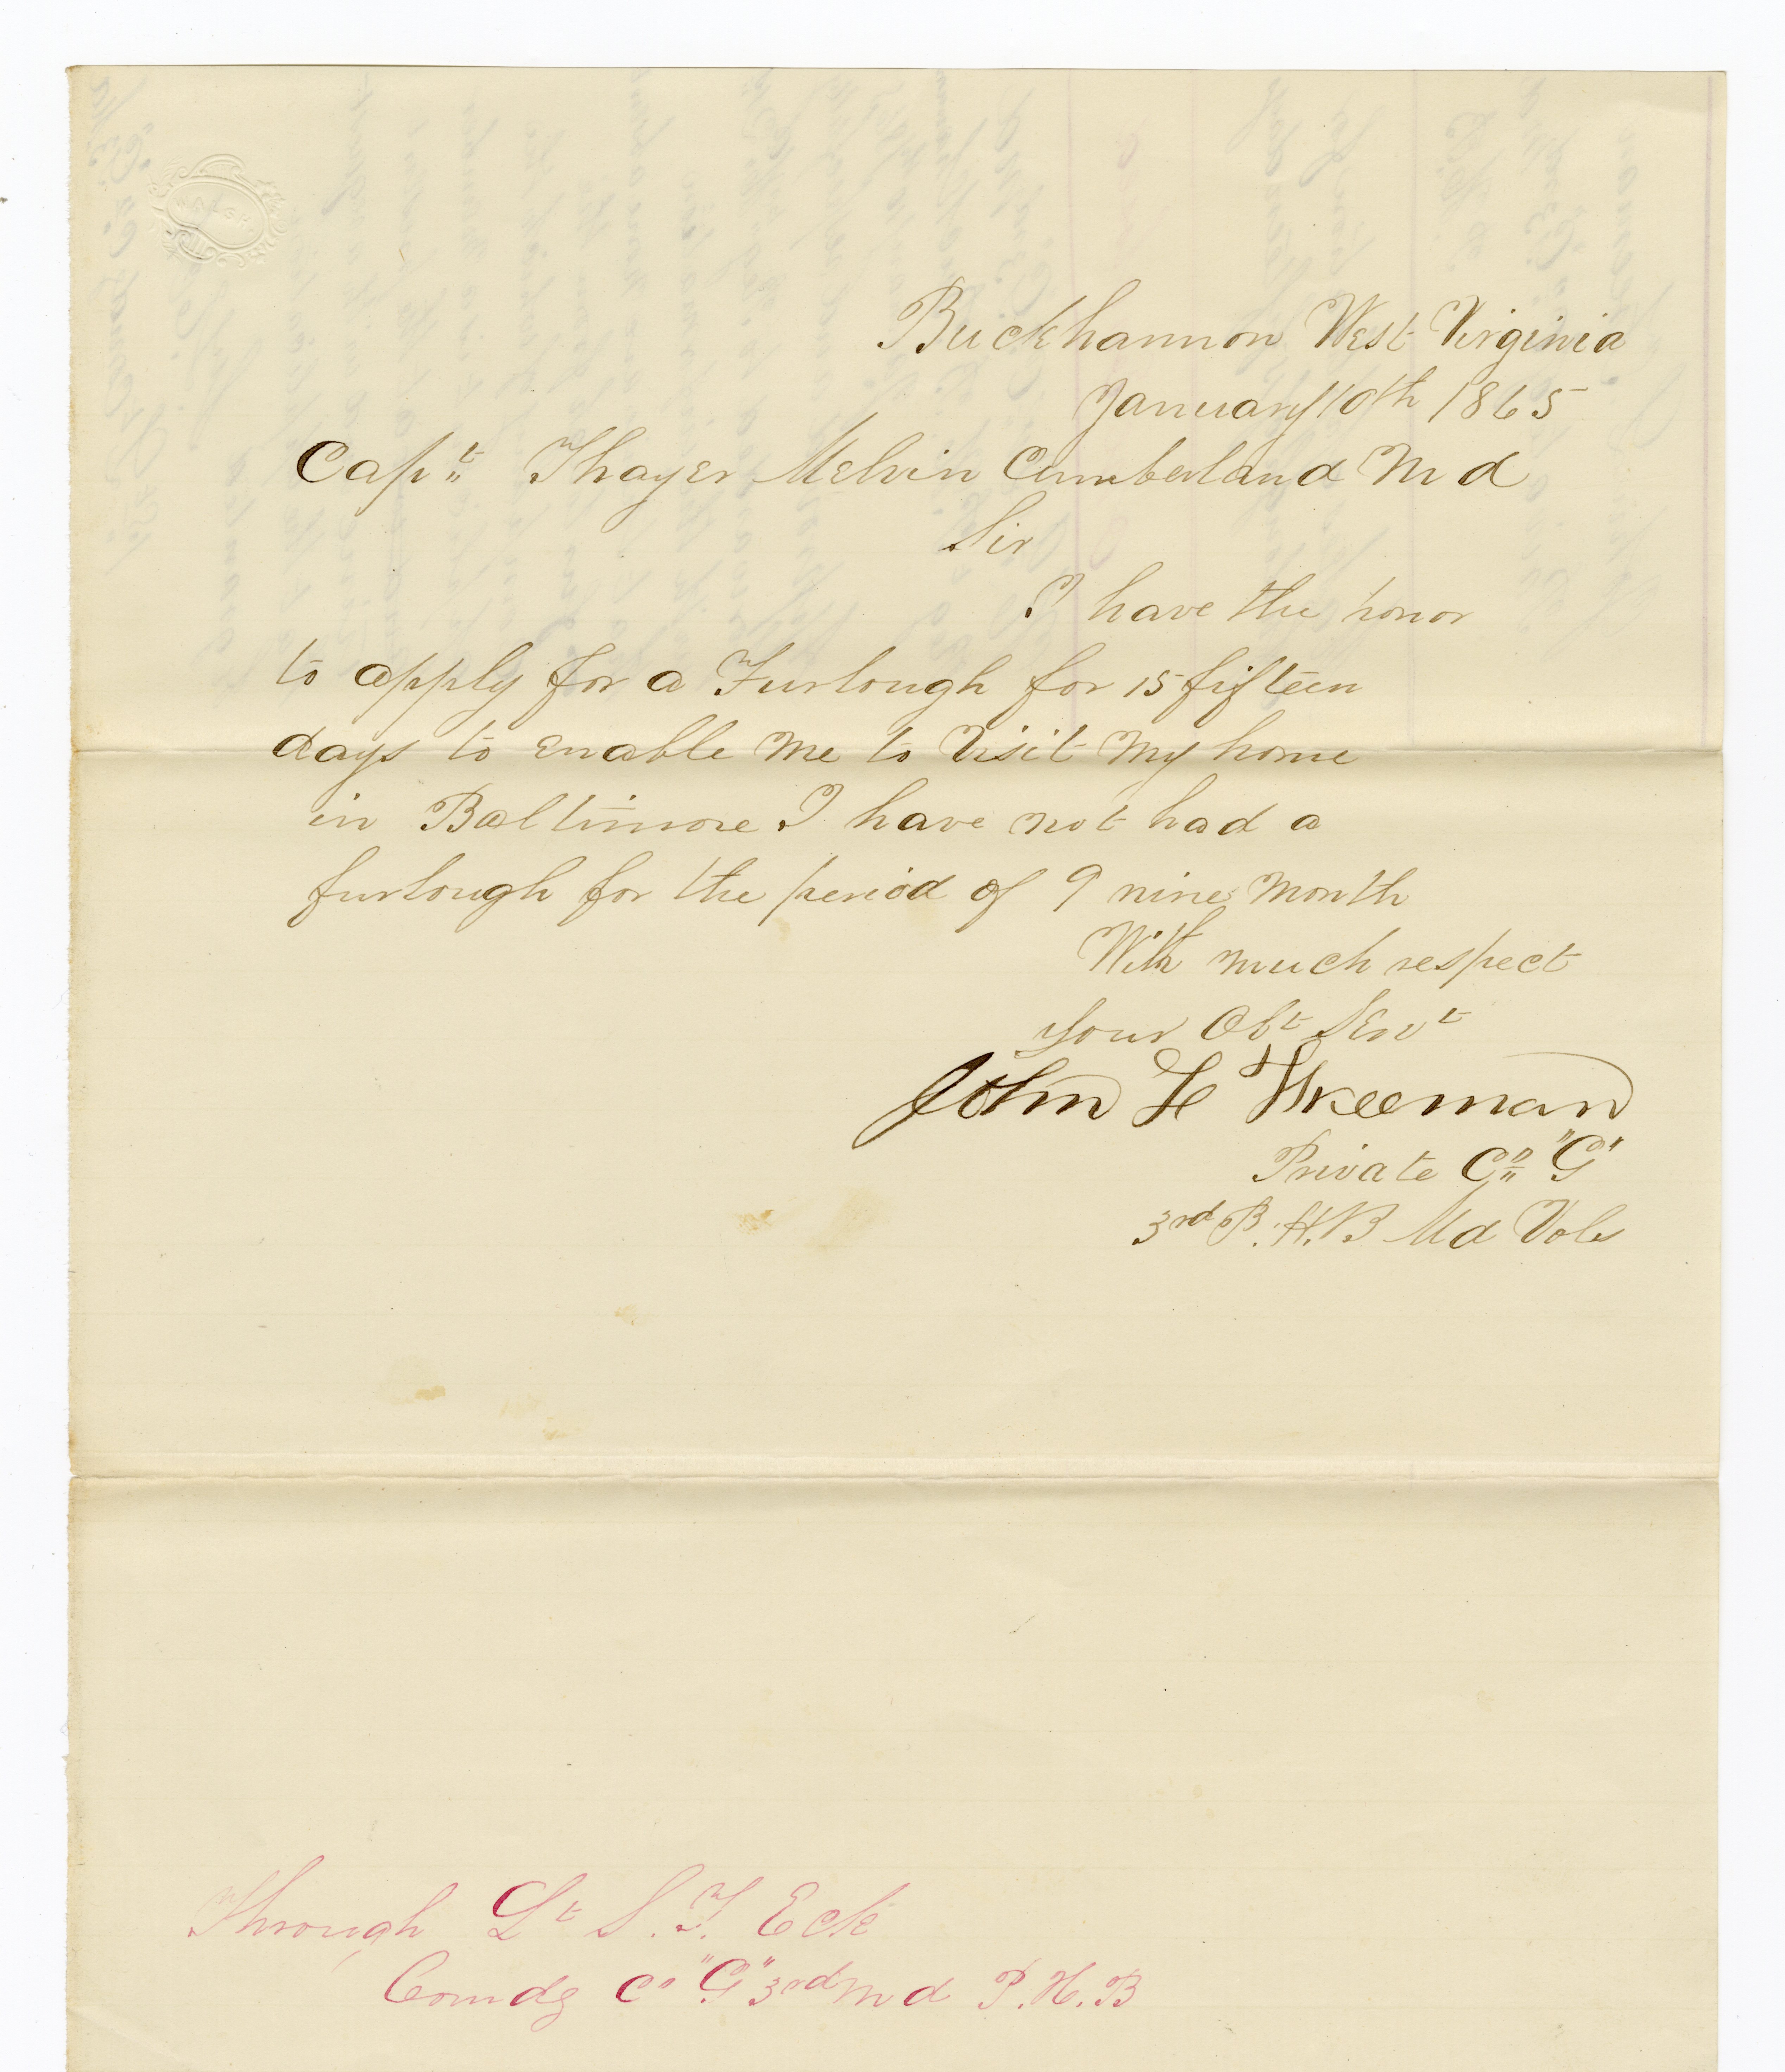 Buckhannon West Virginia
January 10th 1865
Capt Thayer Melvin Cumberland Md
Sir
I have the honor
to apply for a Furlough for 15 fifteen
days to enable me to Visit my home
in Baltimore I have not had a
furlough for the period of 9 nine month
With much respect
your Obt Servt
John H Freeman
Private Co "G"
3rd P. H. B Md Vols
Through Lt S. F. Eck
Comdg Co "G" 3rd Md P. H. B